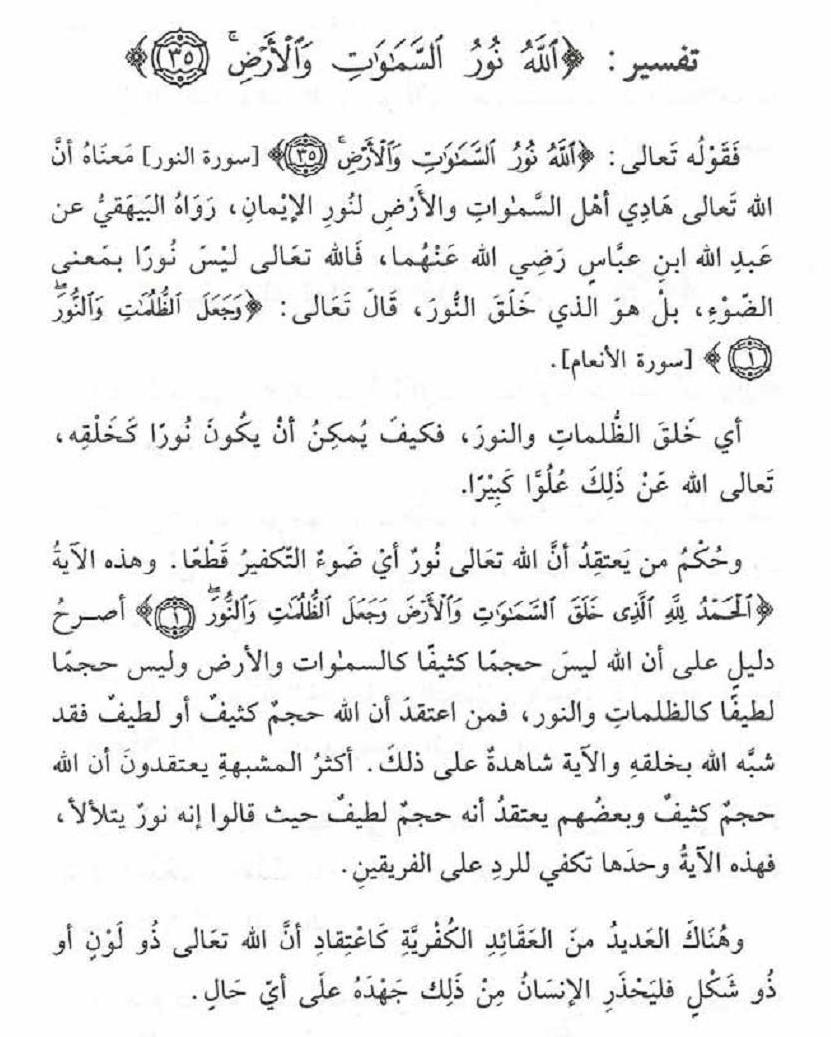 تفسير : ﴿ٱللَّهُ نُورُ ٱلسَّمَـٰوَٰتِ وَٱلْأَرْضِ ۚ ٣٥﴾
فَقَوْلُه تَعالى: ﴿ٱللَّهُ نُورُ ٱلسَّمَـٰوَٰتِ وَٱلْأَرْضِ ۚ ٣٥﴾ [سورة النور] مَعنَاهُ أنَّ
الله تَعالى هَادِي أهْل السَّمٰواتِ والأَرْضِ لنُورِ الإيْمانِ، رَوَاهُ البَيهَقيُّ عن
عَبدِ الله ابنِ عبَّاسٍ رَضِي الله عَنْهُما، فَالله تعَالى ليْسَ نُورًا بمَعنى
الضّوْءِ، بلْ هوَ الذي خَلَقَ النُّورَ، قَالَ تَعَالى: ﴿وَجَعَلَ ٱلظُّلُمَـٰتِ وَٱلنُّورَ ۖ
١﴾ [سورة الأنعام].
أي خَلقَ الظُّلماتِ والنورَ، فكيفَ يُمكِنُ أنْ يكُونَ نُورًا كَخَلْقِه،
تَعالى الله عَنْ ذَلِكَ عُلُوًّا كَبِيْرًا.
وحُكْمُ من يَعتقِدُ أنَّ الله تعَالى نُورٌ أيْ ضَوءٌ التّكفيرُ قَطْعًا. وهذه الآيةُ
﴿ٱلْحَمْدُ لِلَّهِ ٱلَّذِى خَلَقَ ٱلسَّمَـٰوَٰتِ وَٱلْأَرْضَ وَجَعَلَ ٱلظُّلُمَـٰتِ وَٱلنُّورَ ۖ ١﴾ أصـرحُ
دليلٍ على أن الله ليسَ حجمًا كثيفًا كالسمٰوات والأرض وليس حجمًا
لطيفًا كالظلماتِ والنور، فمن اعتقدَ أن الله حجمٌ كثيفٌ أو لطيفٌ فقد
شبَّه الله بخلقهِ والآية شاهدةٌ على ذلكَ. أكثرُ المشبهةِ يعتقدونَ أن الله
حجمٌ كثيفٌ وبعضُهم يعتقدُ أنه حجمٌ لطيفٌ حيث قالوا إنه نورٌ يتلألأ،
فهذه الآيةُ وحدَها تكفي للردِ على الفريقينِ.
وهُنَاكَ العَديدُ منَ العَقَائِدِ الكُفْريَّةِ كَاعْتِقادِ أنَّ الله تعَالى ذُو لَوْنٍ أو
ذُو شَكْلٍ فليَحْذَرِ الإنسَانُ مِنْ ذَلِك جَهْدَهُ علَى أيّ حَالٍ.